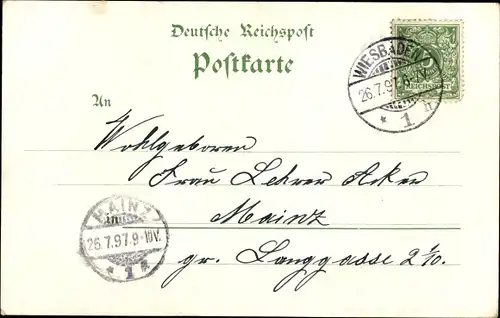 Deutsche Reichspost
Postkarte
WIESBADEN
26.7.97. 6-7V.
* 1 h
5
REICHSPOST
An
Wohlgeboren
Frau Lehrer Acker
Mainz
gr. Langgasse 2 1/10.
MAINZ
26.7.97. 9-10V.
* 1